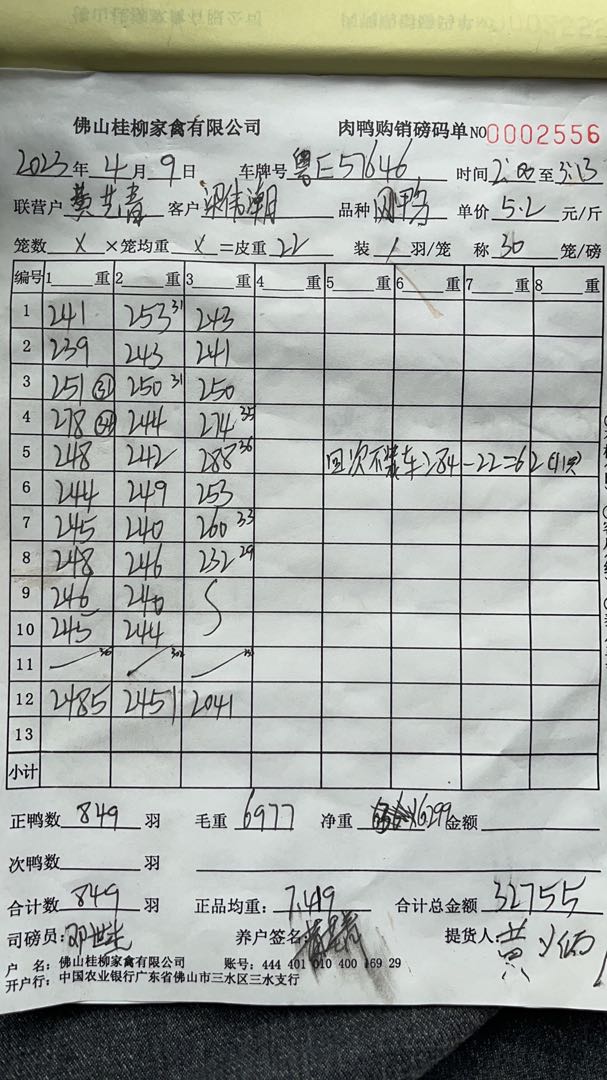 佛山桂柳家禽有限公司 肉鸭购销磅码单 NO 0002556
2023年4月9日 车牌号 粤E57646 时间 2:00 至 3:13
联营户 客户 品种 单价 5.2 元/斤
笼数 X ×笼均重 X =皮重 22 装 1 羽/笼 称 30 笼/磅
编号 1 重 2 重 3 重 4 重 5 重 6 重 7 重 8 重
1 241 253 31 243
2 239 243 241
3 251 31 250 31 250
4 278 34 244 274 35
5 248 242 288 36 回次不装车 284-22=62
6 244 249 253
7 245 240 260 33
8 248 246 232 29
9 246 240
10 245 244
11
12 2485 2451 2041
13
小计
正鸭数 849 羽 毛重 6977 净重 6299 金额
次鸭数 羽
合计数 849 羽 正品均重: 7.419 合计总金额 32755
司磅员: 养户签名: 提货人:
户 名: 佛山桂柳家禽有限公司 账号: 444 401 010 400 169 29
开户行: 中国农业银行广东省佛山市三水区三水支行